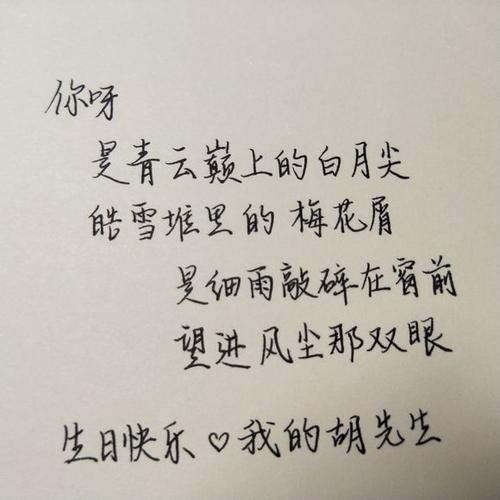 你呀
是青云巅上的白月尖
皓雪堆里的 梅花屑
是细雨敲碎在窗前
望进风尘那双眼
生日快乐♡我的胡先生